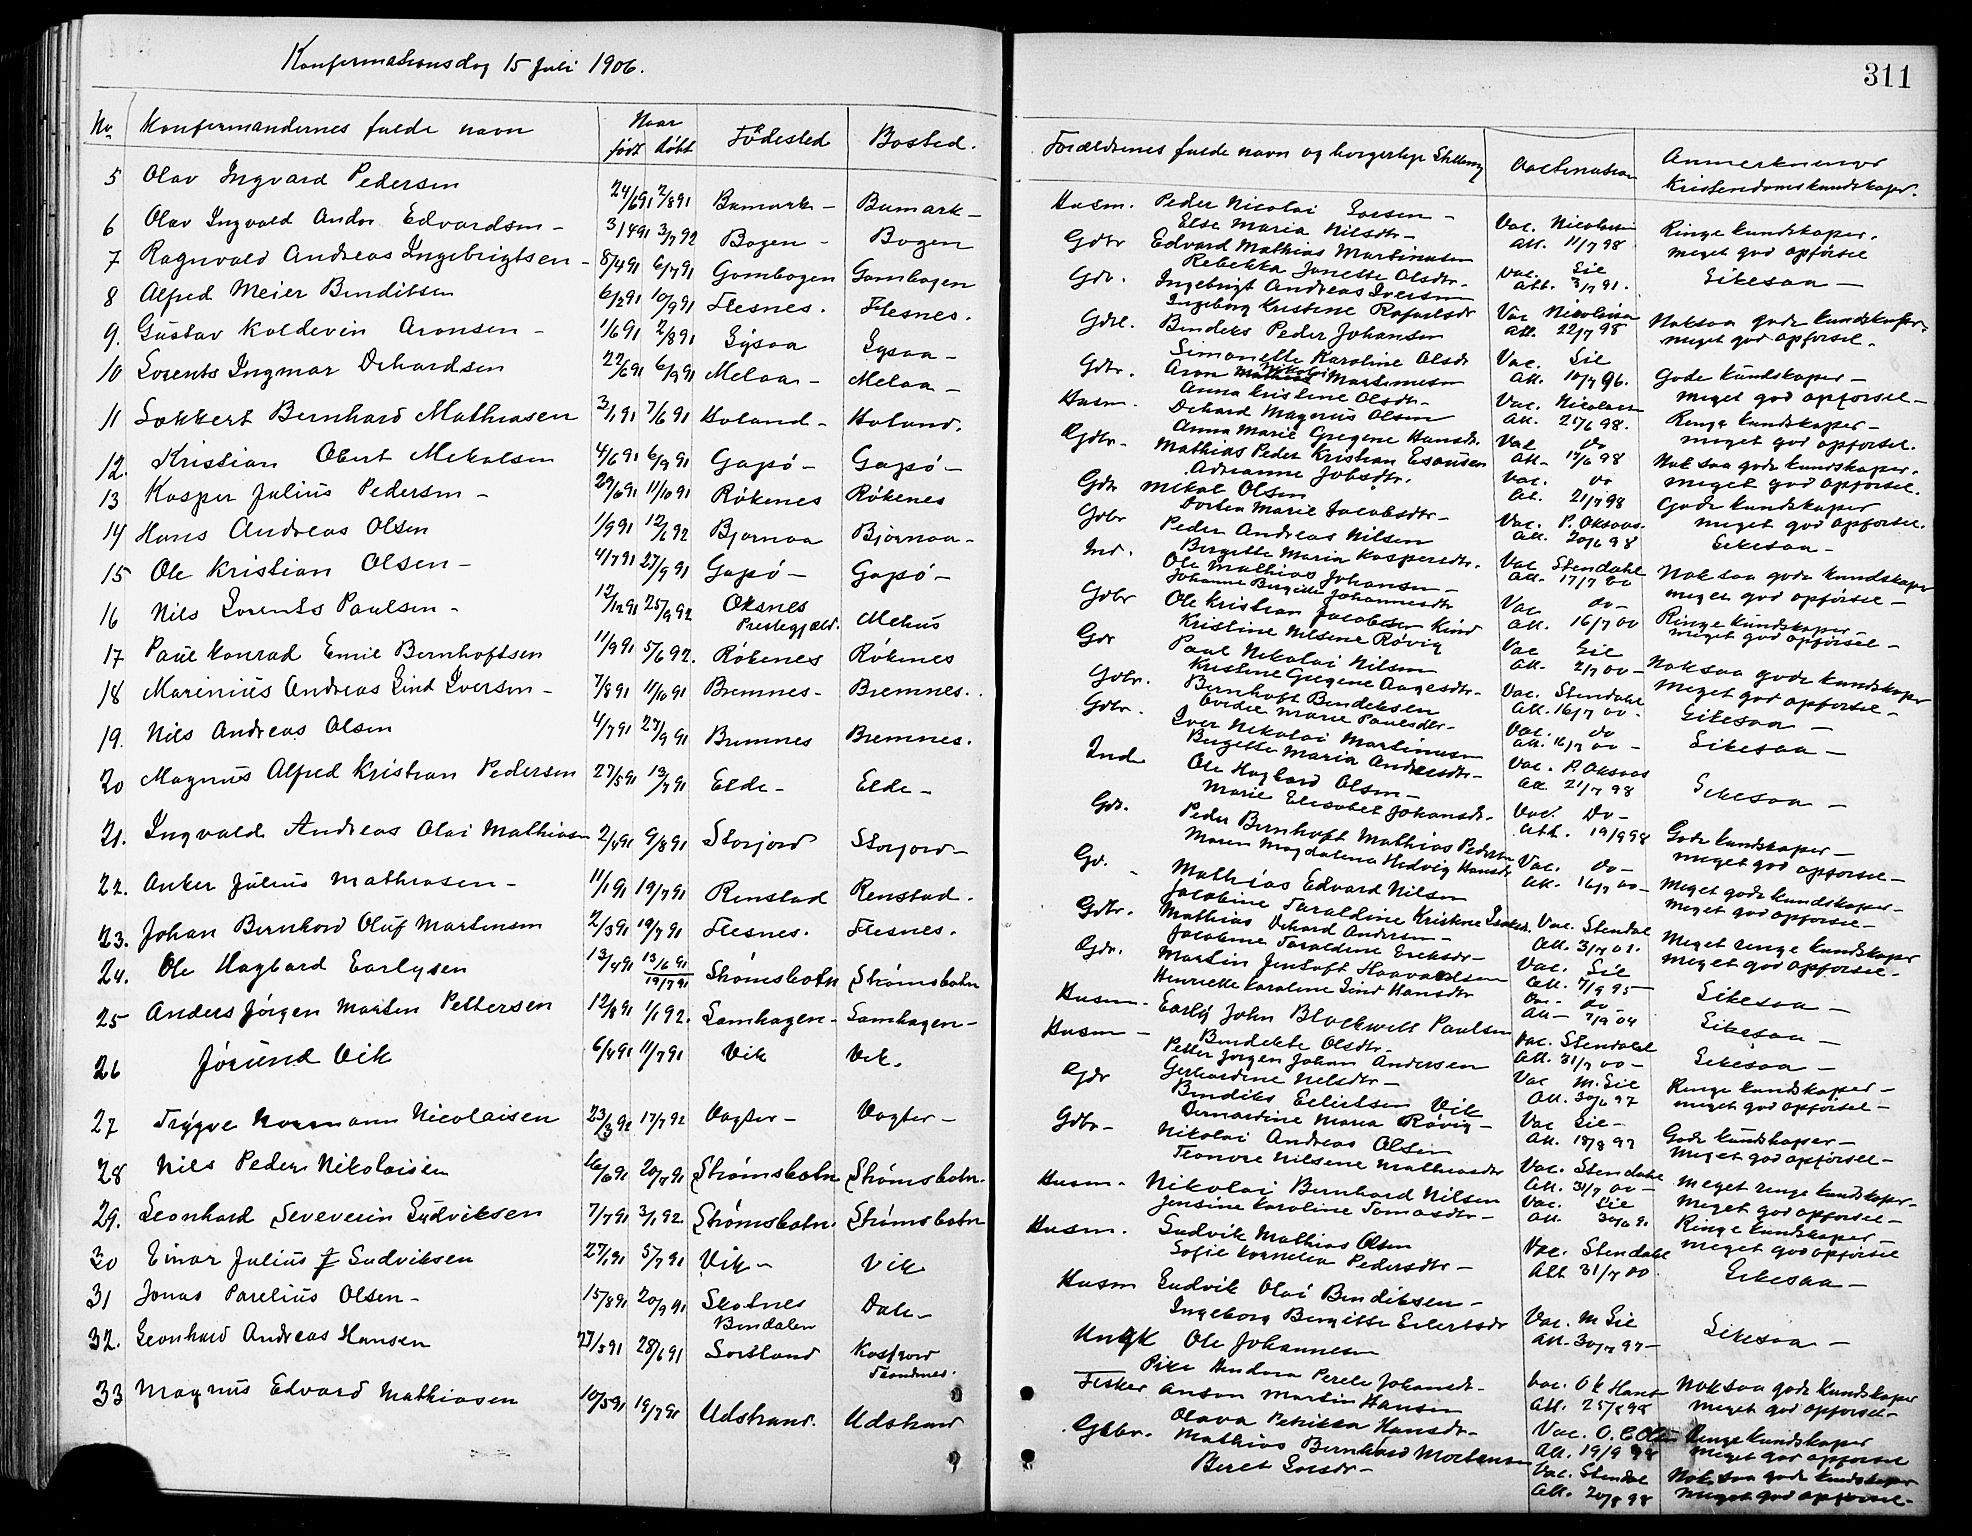 Konfirmationsdag 15 Juli 1906.
No Konfirmandernes fulde navn Naar født døbt Fødested Bosted.
5 Olav Ingvard Pedersen 24/6 91 2/8 91 Bamark - Bamark -
6 Olav Ingvald Andor Edvardsen - 3/4 91 3/7 92 Bogen - Bogen
7 Ragnvald Andreas Ingebrigtsen - 8/4 91 6/7 91 Gambogen Gambogen
8 Alfred Meier Bendiksen 6/2 91 10/9 91 Flesnes. Flesnes.
9. Gustav Koldevin Aronsen - 1/6 91 2/8 91
10 Lorents Ingmar Dehardsen 22/6 91 6/9 91 Melaa - Melaa -
11 Lokkert Bernhard Mathiasen 3/1 91 7/6 91 Holand - Holand.
12. Kristian Obert Mekalsen 4/6 91 6/9 91 Gapø - Gapø -
13 Kasper Julius Pedersen - 29/6 91 11/10 91 Røkenes Røkenes
14 Hans Andreas Olsen 1/9 91 12/6 92 Bjørnaa Bjørnaa -
15 Ole Kristian Olsen - 4/7 91 27/9 91 Gapø - Gapø -
16 Nils Lorents Paulsen - 12/12 91 25/9 92 Øksnes Prestegjæld. Mehus
17 Paul Konrad Emil Bernhoftsen 11/9 91 5/6 92. Røkenes Røkenes
18 Marinius Andreas Lind Iversen - 7/8 91 11/10 91 Bremnes - Bremnes.
19. Nils Andreas Olsen 4/7 91 27/9 91 Bremnes Bremnes.
20 Magnus Alfred Kristian Pedersen 27/5 91 13/7 91 Elde - Elde -
21. Ingvald Andreas Olai Mathiasen 2/4 91 9/8 91 Storjord Storjord -
22. Anker Julius Mathiasen - 11/1 91 19/7 91 Renstad Renstad.
23. Johan Bernhard Oluf Martensen 2/3 91 19/7 91 Flesnes. Flesnes.
24. Ole Hagbard Earlysen 13/4 91 13/6 91 19/7 91 Strømsbotn Strømsbotn
25 Anders Jørgen Martin Pettersen 12/8 91 1/1 92. Samhagen - Samhagen -
26 Jørund Vik 6/4 91 11/7 91 Vik Vik.
27 Trygve Normann Nicolaisen 23/3 92 17/7 92 Vagter - Vagter -
28 Nils Peder Nikolaisen 16/6 91 20/7 91 Strømsbotn Strømsbotn.
29. Leonhard Severin Ludviksen 7/7 91 3/1 92. Strømsbotn. Strømsbotn
30 Einar Julius Ludviksen 27/1 91 5/7 91 Vik - Vik
31 Jonas Parelius Olsen - 15/8 91 20/9 91 Skotnes Bindalen Dale -
32. Leonhard Andreas Hansen 27/5 91 28/6 91 Sortland Kasfjord Trondenes.
33 Magnus Edvard Mathiasen 10/5 91 19/7 91 Udstrand. Udstrand
311
Forældrenes fulde navn og borgerlige Stilling Vaccination Anmerkninger Kristendomskundskaper.
Husm. Peder Nicolai Larsen -
Else Maria Nilsdtr - Vac. Nicolaisen Att. 11/7 98 Ringe kundskaper. meget god opførsel
Gdbr Edvard Mathias Martinusen
Rebekka Janette Olsdtr - Vac. Sie Att. 3/7 91. Likesaa -
Gdr. Ingebrigt Andreas Iversen
Ingeborg Kristine Rafaelsdtr Vac Nicolaisen Att. 22/7 98 Noksaa gode kundskaper. meget god opførsel.
Bendiks Peder Johansen
Simonette Karoline Olsdtr Vac. Sie Att. 10/7 96. Gode kundskaper - meget god opførsel -
Gdbr. Aron Nikolai Martinusen
Anna Kristine Olsdtr - Vac. Nicolaisen Att. 21/6 98. Ringe kundskaper - meget god opførsel.
Husm. Dehard Magnus Olsen
Anna Marie Gregine Hansdtr. Vac do Att. 17/6 98 Nok saa gode kundskaper. meget god opførsel.
Gdbr - Mathias Peder Kristian Esausen
Adrianne Jobsdtr. Vac. do Att. 21/7 98 Gode kundskaper meget god opførsel.
Gdr Mikal Olsen
Dorthea Marie Jacobsdtr - Vac. P. Oksaas. Att. 20/6 98 Likesaa -
Gdbr Peder Andreas Nilsen
Bergitte Maria Kaspersdtr. Vac Stendahl Att. 17/7 00 Nok saa gode kundskaper meget god opførsel -
Ind. Ole Mathias Johansen -
Johanne Birgitte Johannesdtr Vac do - Att. 16/7 00 Ringe kundskaper - meget god opførsel -
Gdbr Ole Kristian Jacobsen Kind
Kristine Nilsine Røvig Vac Sie Att. 2/7 00 - Nok saa gode kundskaper meget god opførsel -
Gdr Paul Nikolai Nilsen
Kristine Gregine Aagesdtr - Vac. Stendahl Att. 16/7 00 - Likesaa -
Gdbr. Bernhoft Bendiksen
Ovidie Marie Paulsdtr - Vac. do Att. 16/7 00 - Likesaa -
Gdbr. Iver Nikolai Martinusen
Birgitte Maria Andersdtr - Vac. P. Oksaas Att. 21/7 98 Likesaa -
Ind Ole Hagbard Olsen -
Marie Elisabet Johansdtr. Vac. Do - Att. 19/9 98 Gode kundskaper - meget god opførsel -
Gdr. Peder Bernhoft Mathias Pedersen
Maren Magdalena Hedvig Hansdtr Vac. do - Att. 16/7 00 - Meget gode kundskaper - meget god opførsel -
Gd. Mathias Edvard Nilsen
Jacobine Taraldine Kristine Isaksdtr. Vac. Stendal Att. 31/7 01. Meget ringe kundskaper meget god opførsel -
Gdbr. Mathias Dehard Andersen -
Jacobine Taraldine Eriksdtr - Vac. Sie Att. 7/9 95 - Likesaa -
Gdr. Martin Jentoft Haavardsen
Henriette Karoline Lind Hansdtr Vac - do Att - 7/9 04 Likesaa -
Husm. Early John Blackwell Paulsen
Bendikte Olsdtr - Vac. Stendahl Att. 31/7 00 - Likesaa -
Husm - Petter Jørgen Johan Andersen
Gerhardine Nilsdtr - Vac M. Sie Att. 30/6 97 Ringe kundskaper - meget god opførsel -
Gdr Bendiks Eilertsen Vik
Bernardine Maria Røvig - Vac Sie - Att. 18/8 97 Gode kundskaper - Meget god opførsel -
Gdbr - Nikolai Andreas Olsen
Leonore Nilsine Mathiasdtr Vac. Stendahl Att. 31/7 00 - Meget ringe kundskaper - Meget god opførsel -
Husm. Nikolai Bernhard Nilsen
Jensine Karoline Tomasdtr - Vac. Sie Att Ringe kundskaper - meget god opførsel
Husm. Ludvik Mathias Olsen
Sofie Kornelia Pedersdtr - Vac. Stendahl Att 31/7 00. Likesaa -
Husm Ludvik Olai Bendiksen -
Ingeborg Birgitte Eilertsdtr Vac. M Sie Att. 30/7 97 - Likesaa -
Ungk Ole Johannesen
Pike Perele Johansdtr - Vac. O K Hans Att. 25/8 98 Nok saa gode kundskaper Meget god opførsel -
Fisker Anson Martin Hansen
Olava Petrikka Hansdtr - Vac. O. C Olsen Att. 19/9 98 Ringe kundskaper meget god opførsel
Gdbr. Mathias Bernhard Mortensen
Beret Larsdtr - Vac. Stendal Att. 20/8 98 Nok saa gode kundskaper meget god opførsel -